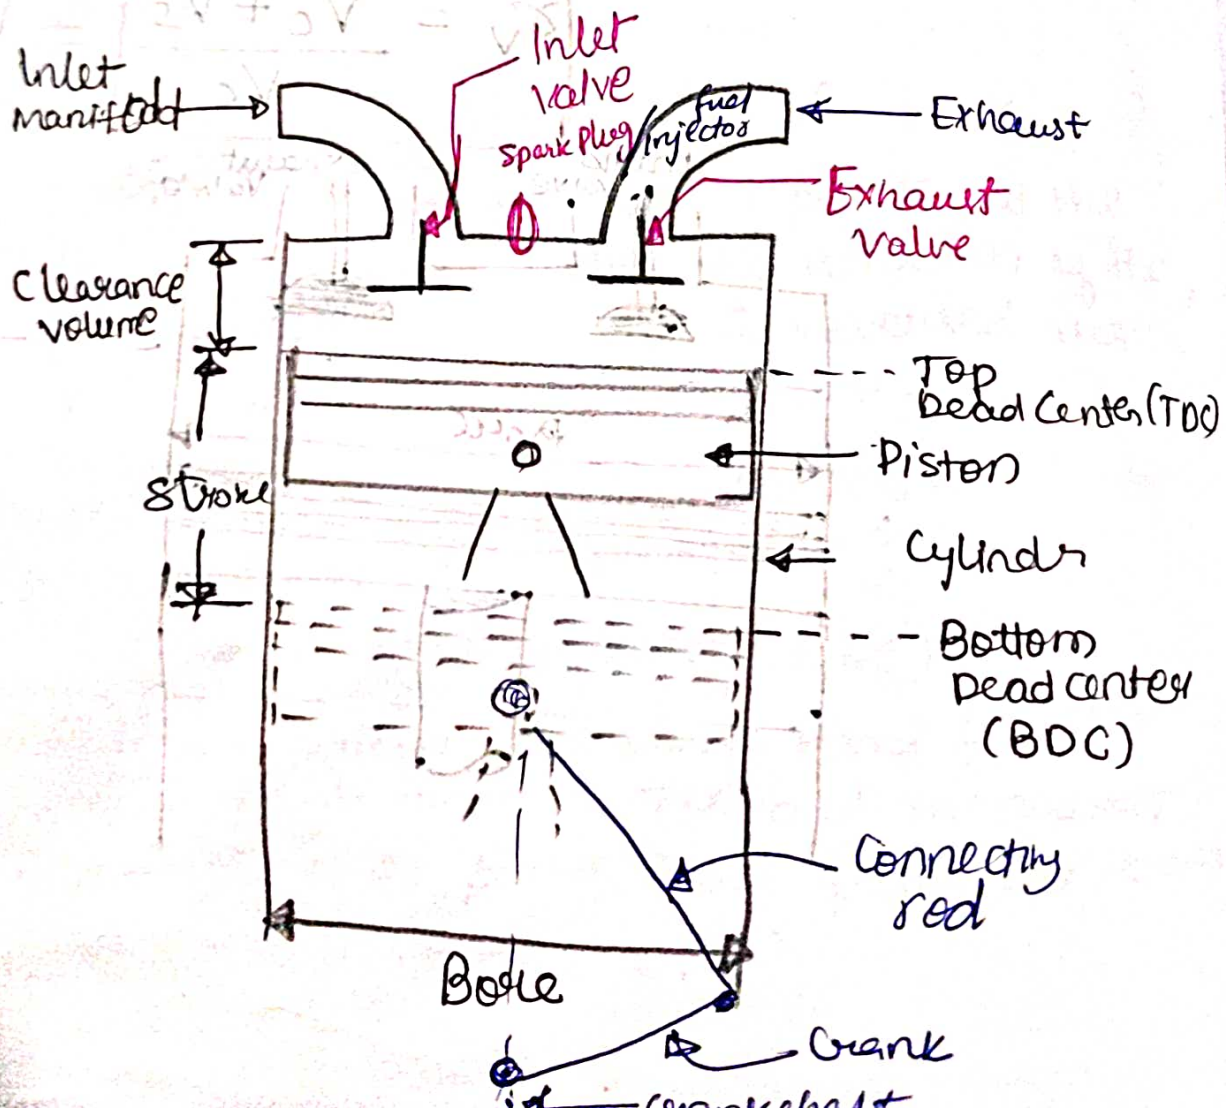 Inlet
valve
Inlet
manifold
spark plug/
fuel
injector
Exhaust
Exhaust
valve
Clearance
volume
Top
Dead Center (TDC)
Piston
Stroke
Cylinder
Bottom
Dead Center
(BDC)
Connecting
rod
Bore
Crank